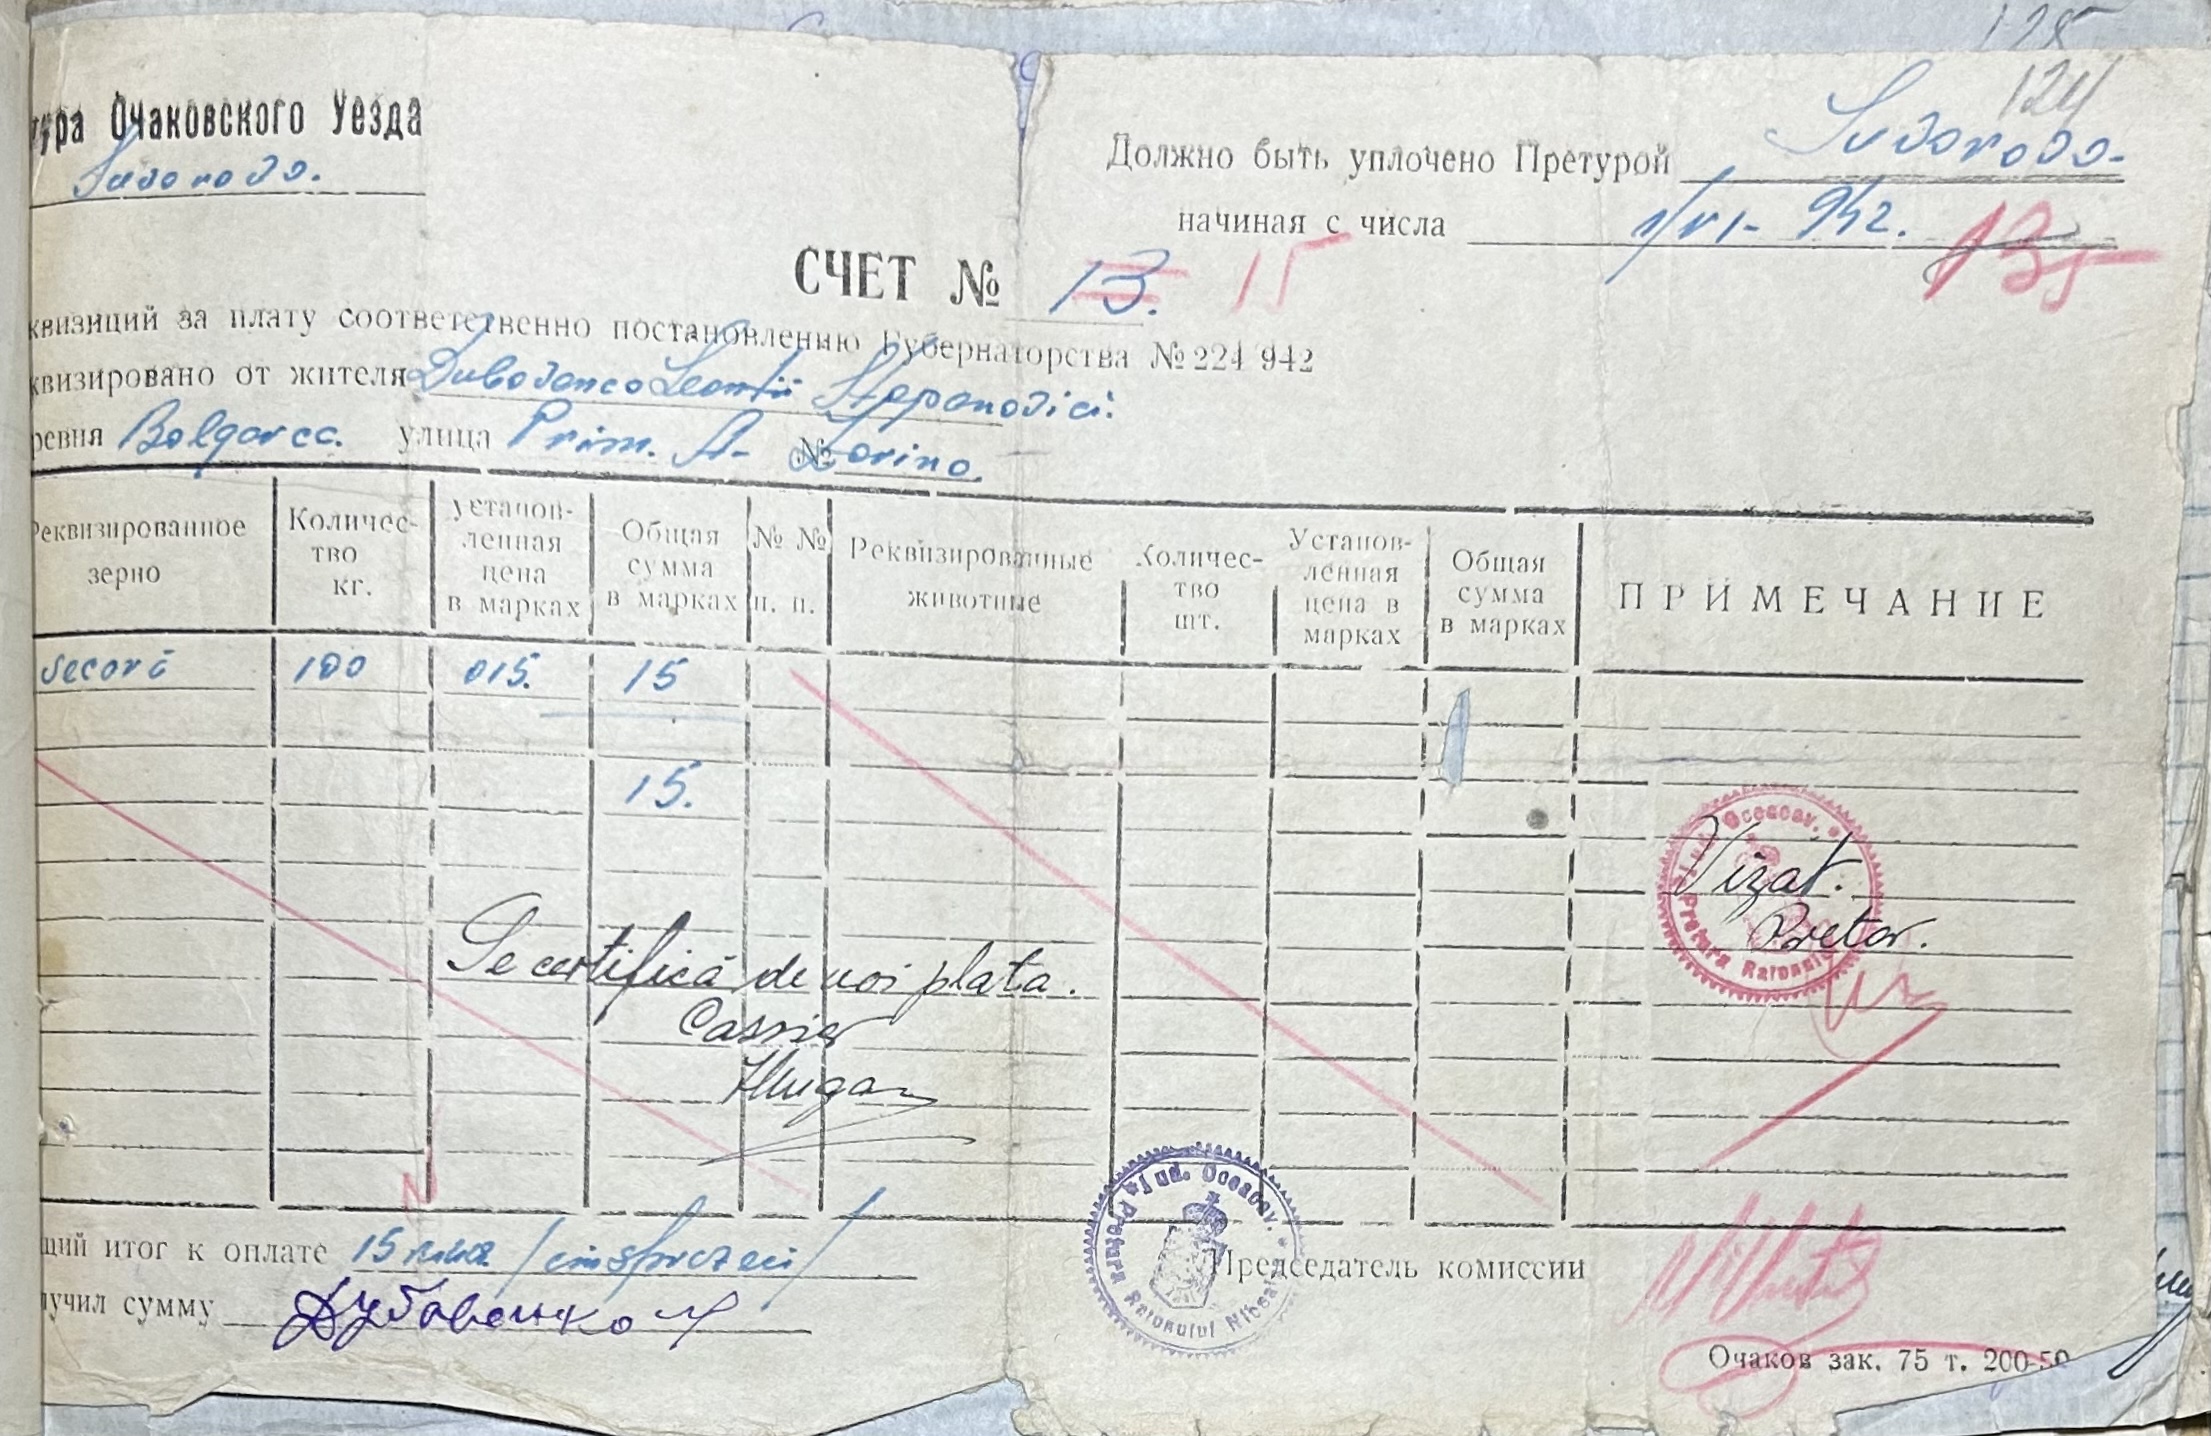 128
124
тура Очаковского Уезда
Suvorovo.
Должно быть уплочено Претурой Suvorovo.
начиная с числа 1/VI- 942.
135
СЧЕТ № 13. 15
квизиций за плату соответственно постановлению Губернаторства № 224 942
квизировано от жителя Dubovenco Leontii Stepanovici.
ревня Bolgarca. улица Prim. A- № Zorino.
Реквизированное зерно
Количес-тво кг.
установ-ленная цена в марках
Общая сумма в марках
№ № п. п.
Реквизированные животные
Количес-тво шт.
Установ-ленная цена в марках
Общая сумма в марках
ПРИМЕЧАНИЕ
secară 100 015. 15
15.
Vizat.
Pretor.
Jud. Oceacov. Pretura Raionului
Se certifică de noi plata.
Cassier
щий итог к оплате 15 /cinsprezeci/
лучил сумму Дубовенко Л
Jud. Oceacov. Pretura Raionului
Председатель комиссии
Очаков зак. 75 т. 200-50